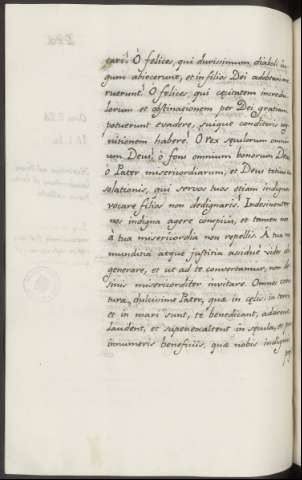 cari! Ó felices, qui durissimum diaboli iu-
gum abiecerunt, et in filios Dei adoptari me-
ruerunt. O felices qui cecitatem incredu-
lorum et obstinationem per Dei gratiam
potuerunt evadere, suique conditoris cog-
nitionem habere! O rex seculorum omni-
um Deus! ó fons omnium bonorum Deus
ó Pater misericordiarum, et Deus totius con-
solationis, qui servos tuos etiam indignos
vocare filios non dedignaris! Indesinenter
nos indigna agere conspicis, et tamen nos
à tua misericordia non repellis. A tua nos
munditia atque justitia assidué vides de-
generare, et ut ad te convertamur, non de-
sinis misericorditer invitare. Omnis crea-
tura, dulcissime Pater, quæ in celis, in terra
et in mari sunt, té benedicant, adorent
laudent, et superexaltent in sęcula, et pro
innumeris beneficiis, quæ nobis indignis